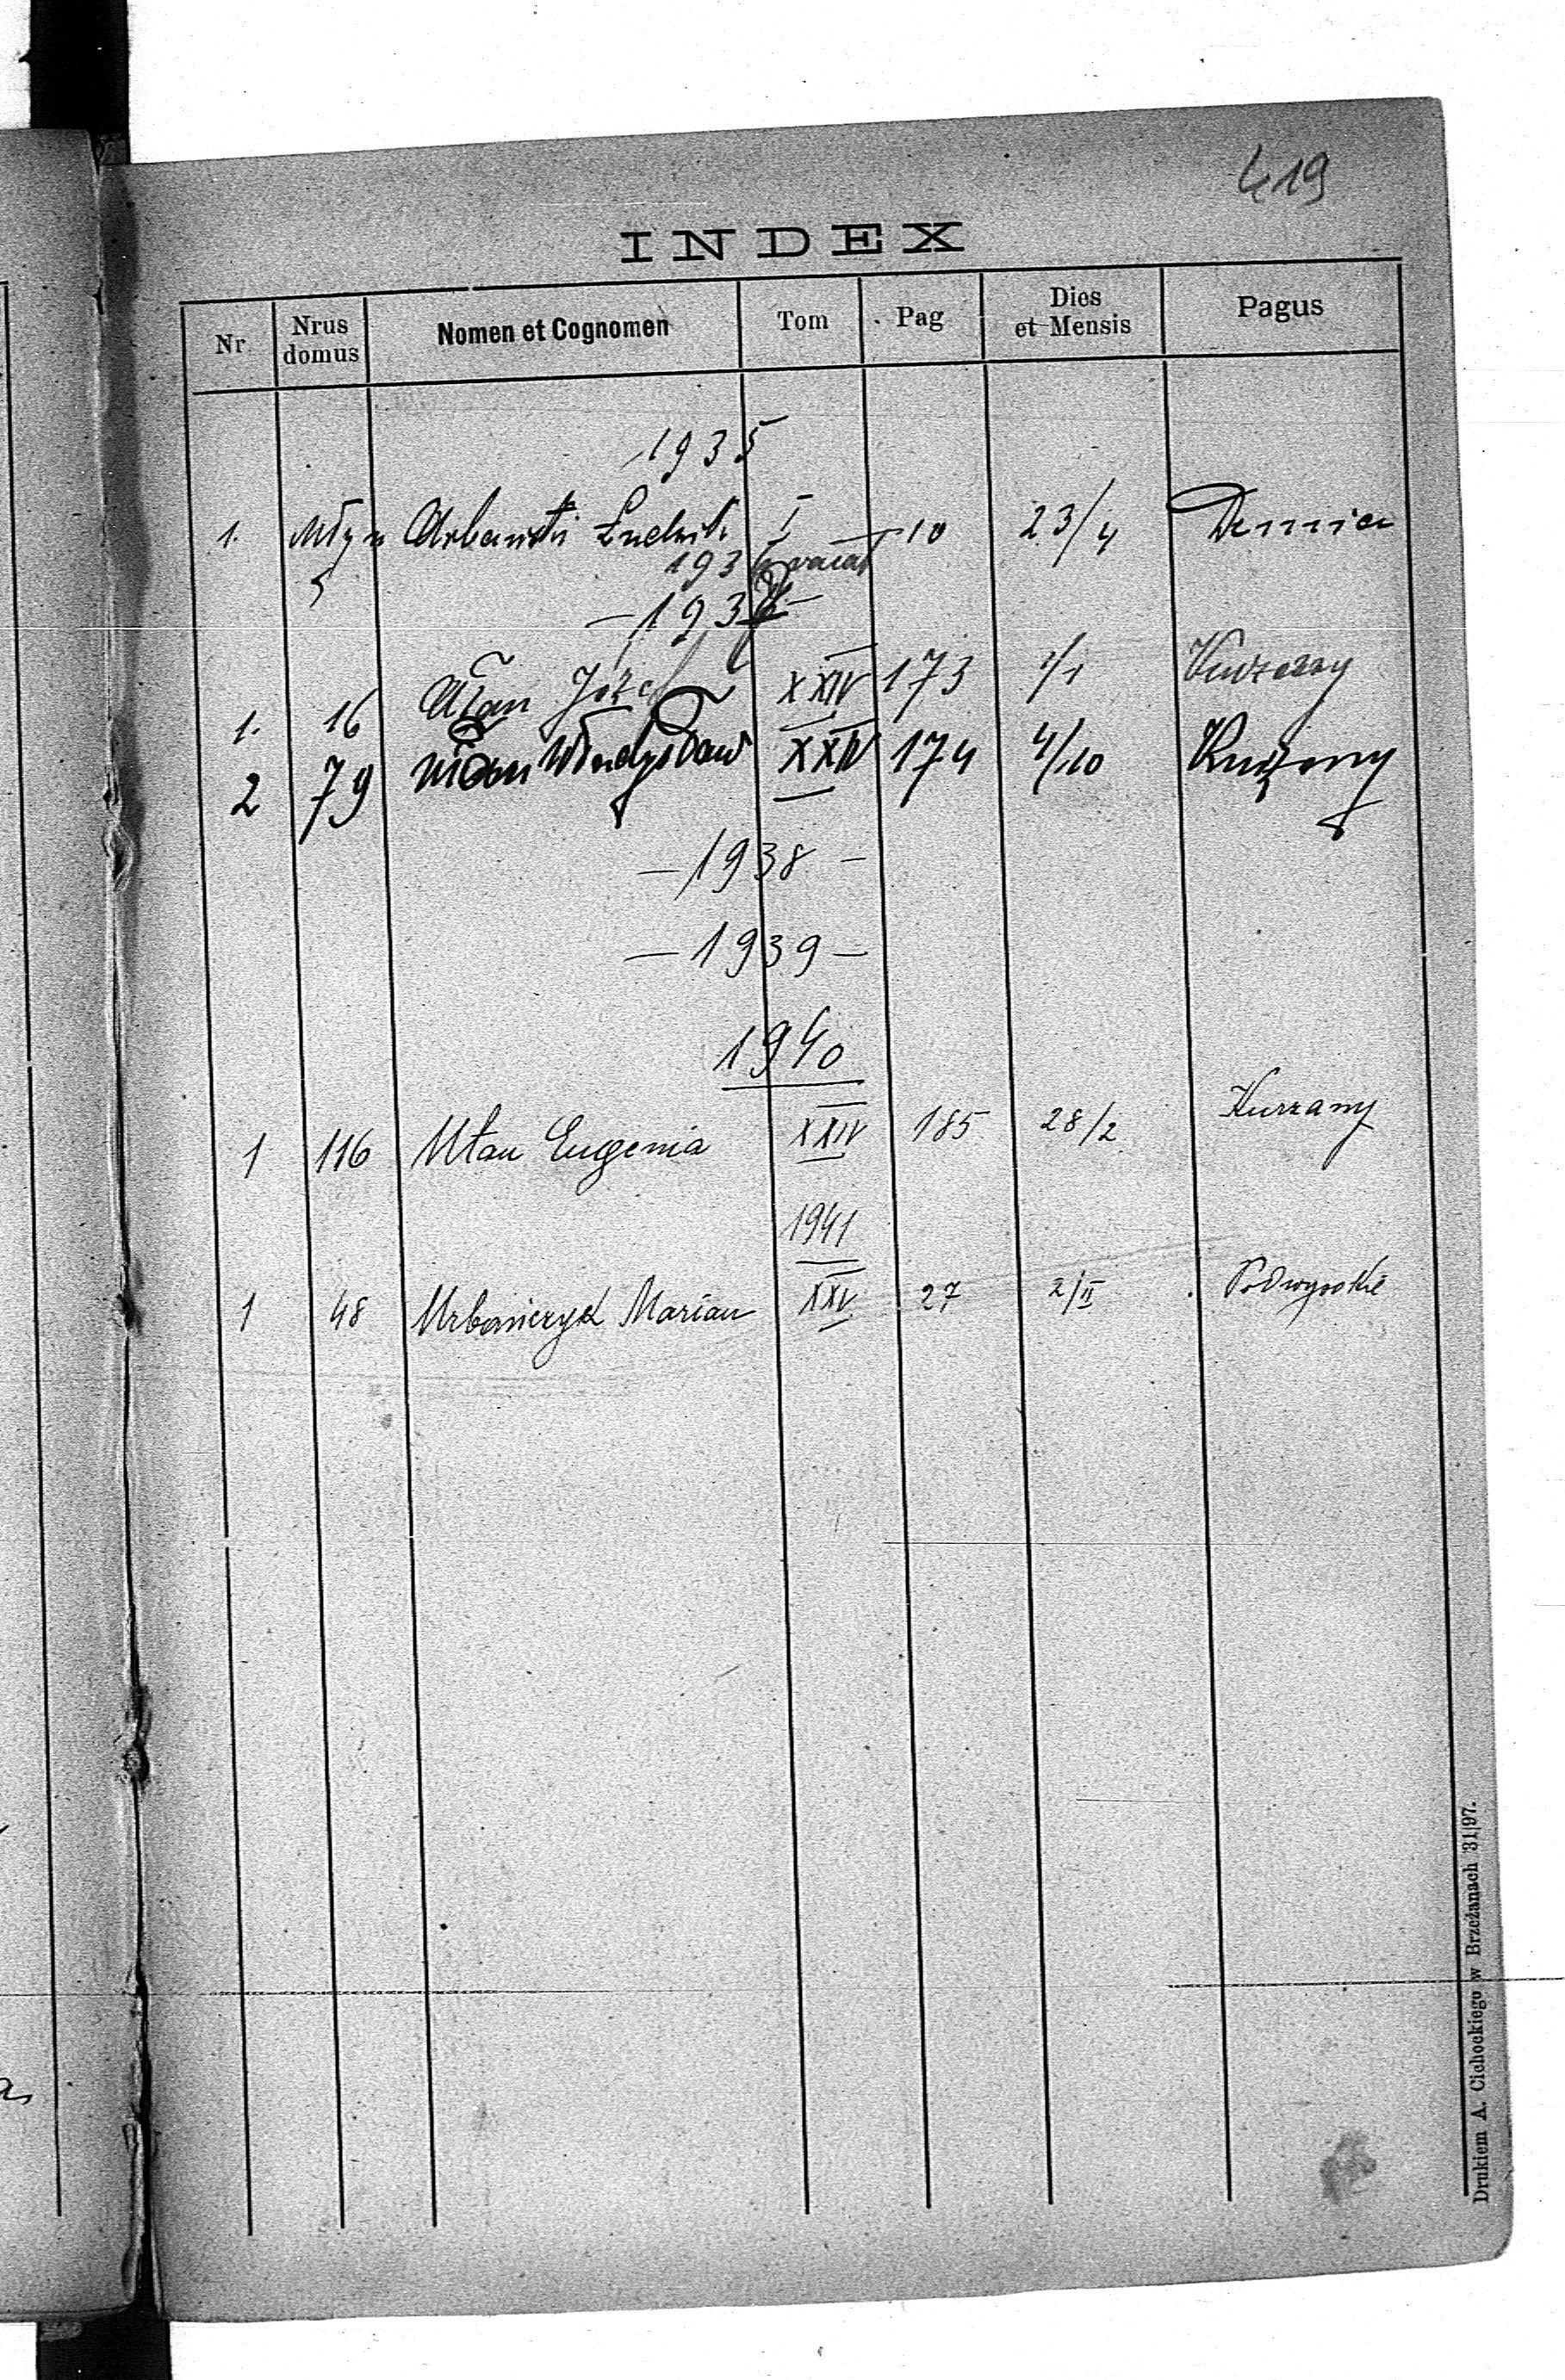 419
INDEX
Nr Nrus domus Nomen et Cognomen Tom Pag Dies et Mensis Pagus
1935
1. Młyn Urbański Ludwik I 10 23/4 Demnia
5 1936 vacat
— 1937 —
1. 16 Ułan Józef XXIV 173 1/1 Kurzany
2 79 Ułan Władysław XXIV 174 4/10 Kurzany
— 1938 —
— 1939 —
1940
1 116 Ułan Eugenia XXIV 185 28/2 Kurzany
1941
1 48 Urbańczyk Marian XXV 27 2/II Podwysokie
Drukiem A. Cichockiego w Brzeżanach 31|97.